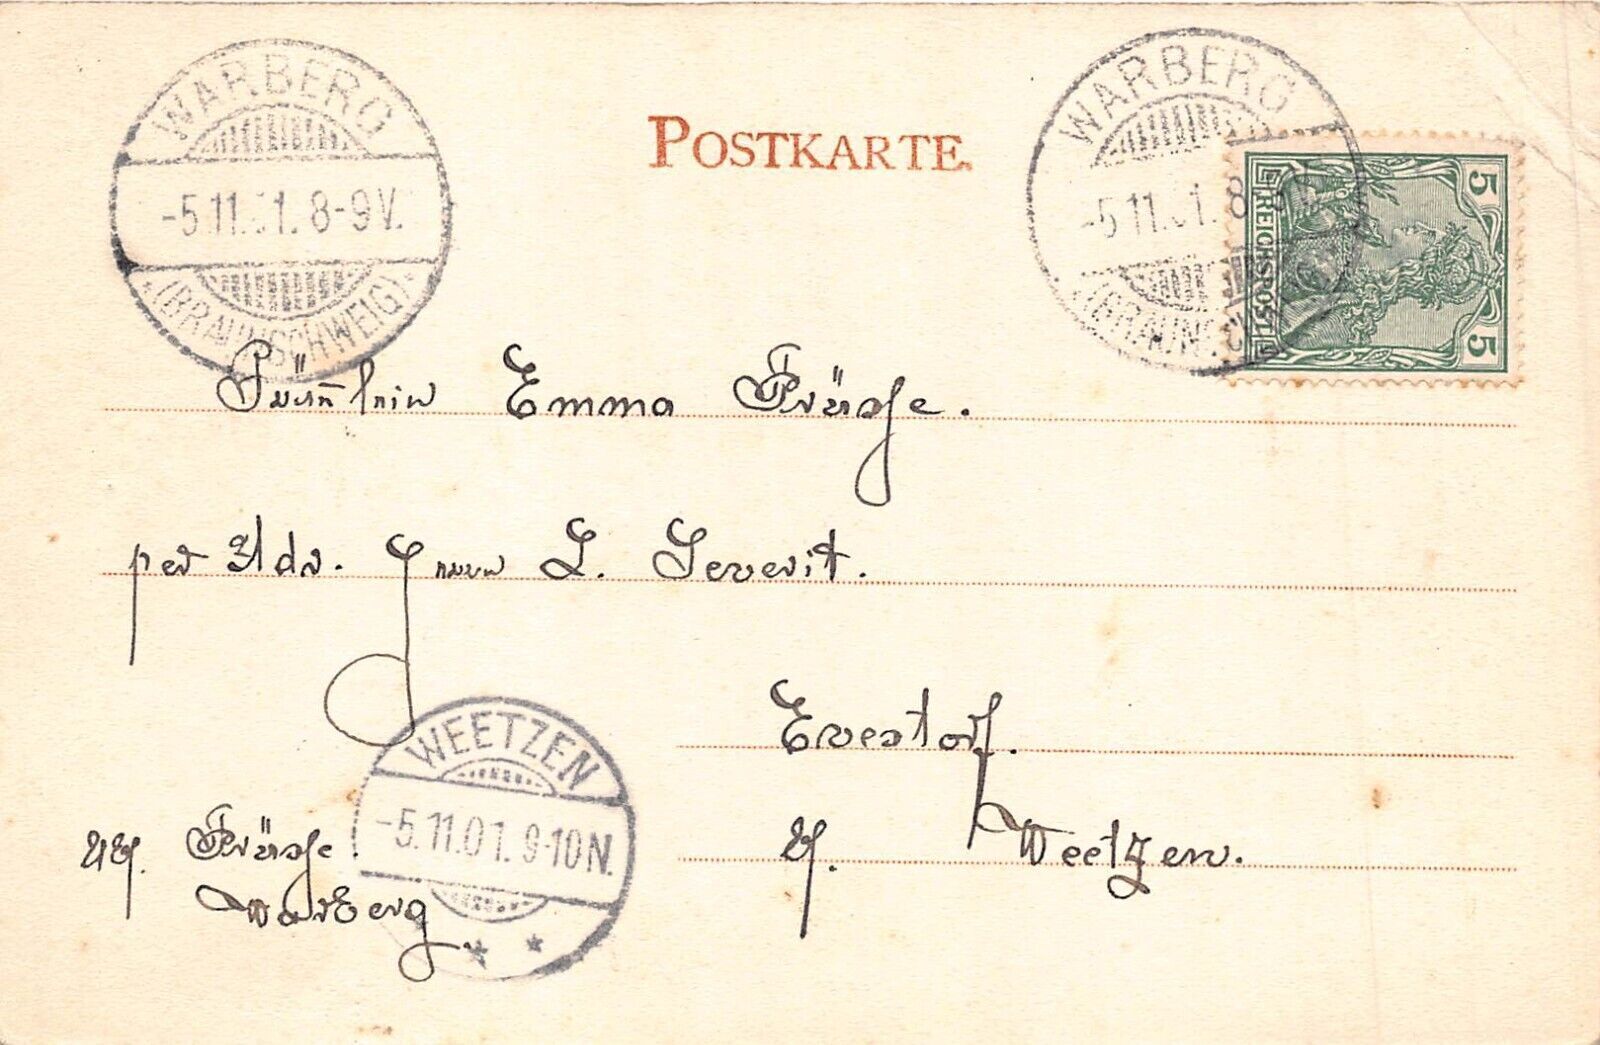 WARBERG
-5.11.01.8-9V.
*(BRAUNSCHWEIG)*
POSTKARTE.
WARBERG
-5.11.01.8-9V.
*(BRAUNSCHWEIG)
REICHSPOST
5
5
Fräulein Emma
per Adr. Herrn L. Severit.
Evestorf.
Weetzen.
Warberg
WEETZEN
-5.11.01.9-10N.
* *